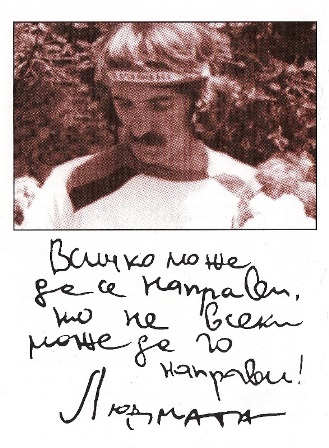 Всичко може
да се направи,
но не всеки
може да го
направи!
Людмата